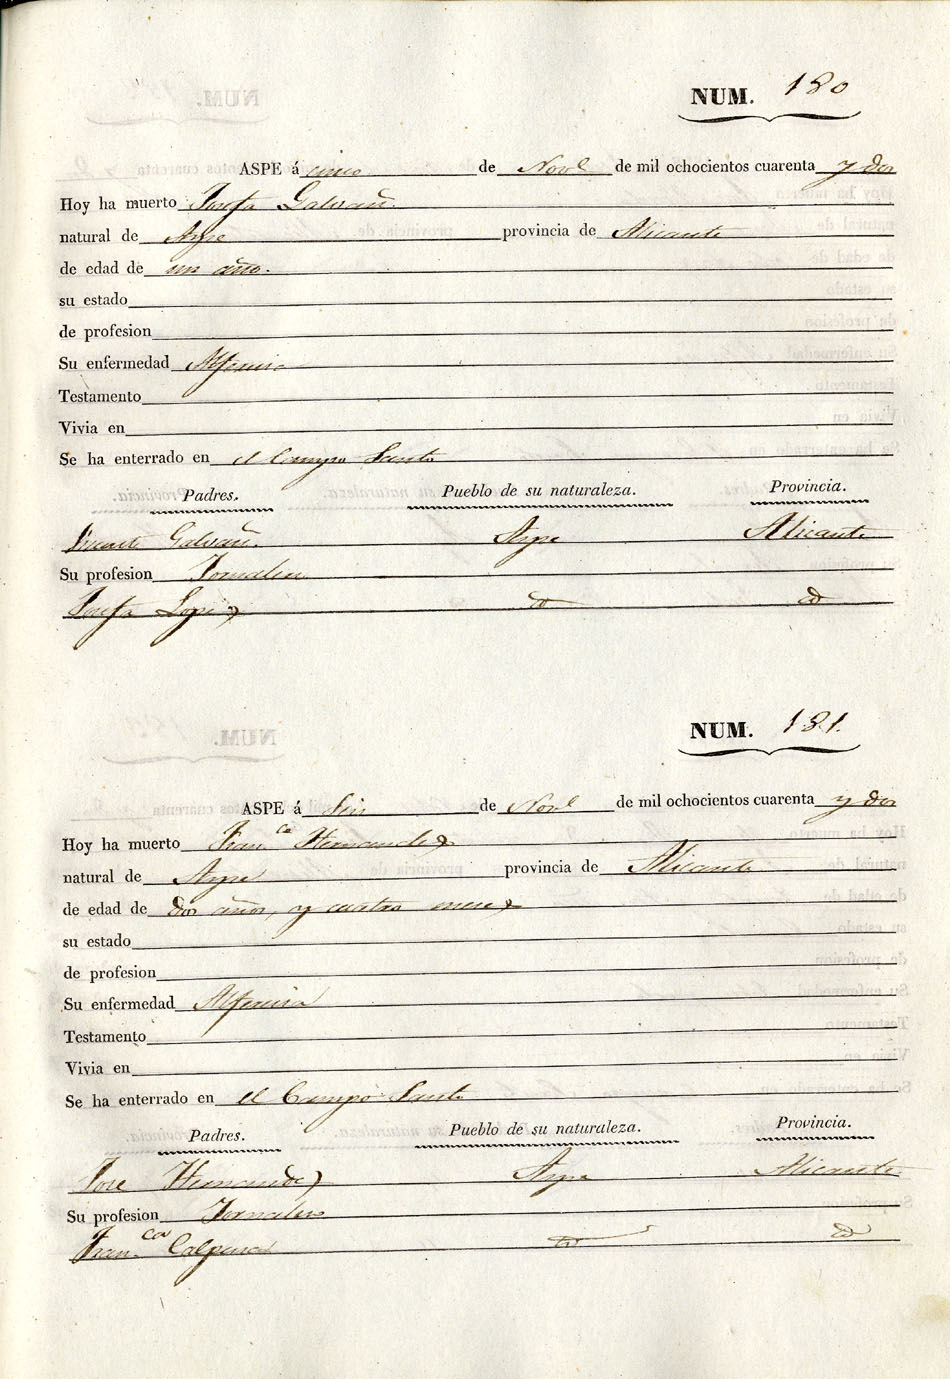 NUM. 180
ASPE á cinco de Novl de mil ochocientos cuarenta y dos
Hoy ha muerto Josefa Galvañ.
natural de Aspe provincia de Alicante
de edad de un año.
su estado
de profesion
Su enfermedad Alferecia
Testamento
Vivia en
Se ha enterrado en el Campo Santo
Padres. Pueblo de su naturaleza. Provincia.
Vicente Galvañ. Aspe Alicante
Su profesion Jornalero
Josefa Lopez id id
NUM. 181.
ASPE á Seis de Novl de mil ochocientos cuarenta y dos
Hoy ha muerto Fran.ca Hernandez
natural de Aspe provincia de Alicante
de edad de dos años, y cuatro meses
su estado
de profesion
Su enfermedad Alferecia
Testamento
Vivia en
Se ha enterrado en el Campo Santo
Padres. Pueblo de su naturaleza. Provincia.
Jose Hernandez Aspe Alicante
Su profesion Jornalero
Fran.ca Calpena id id